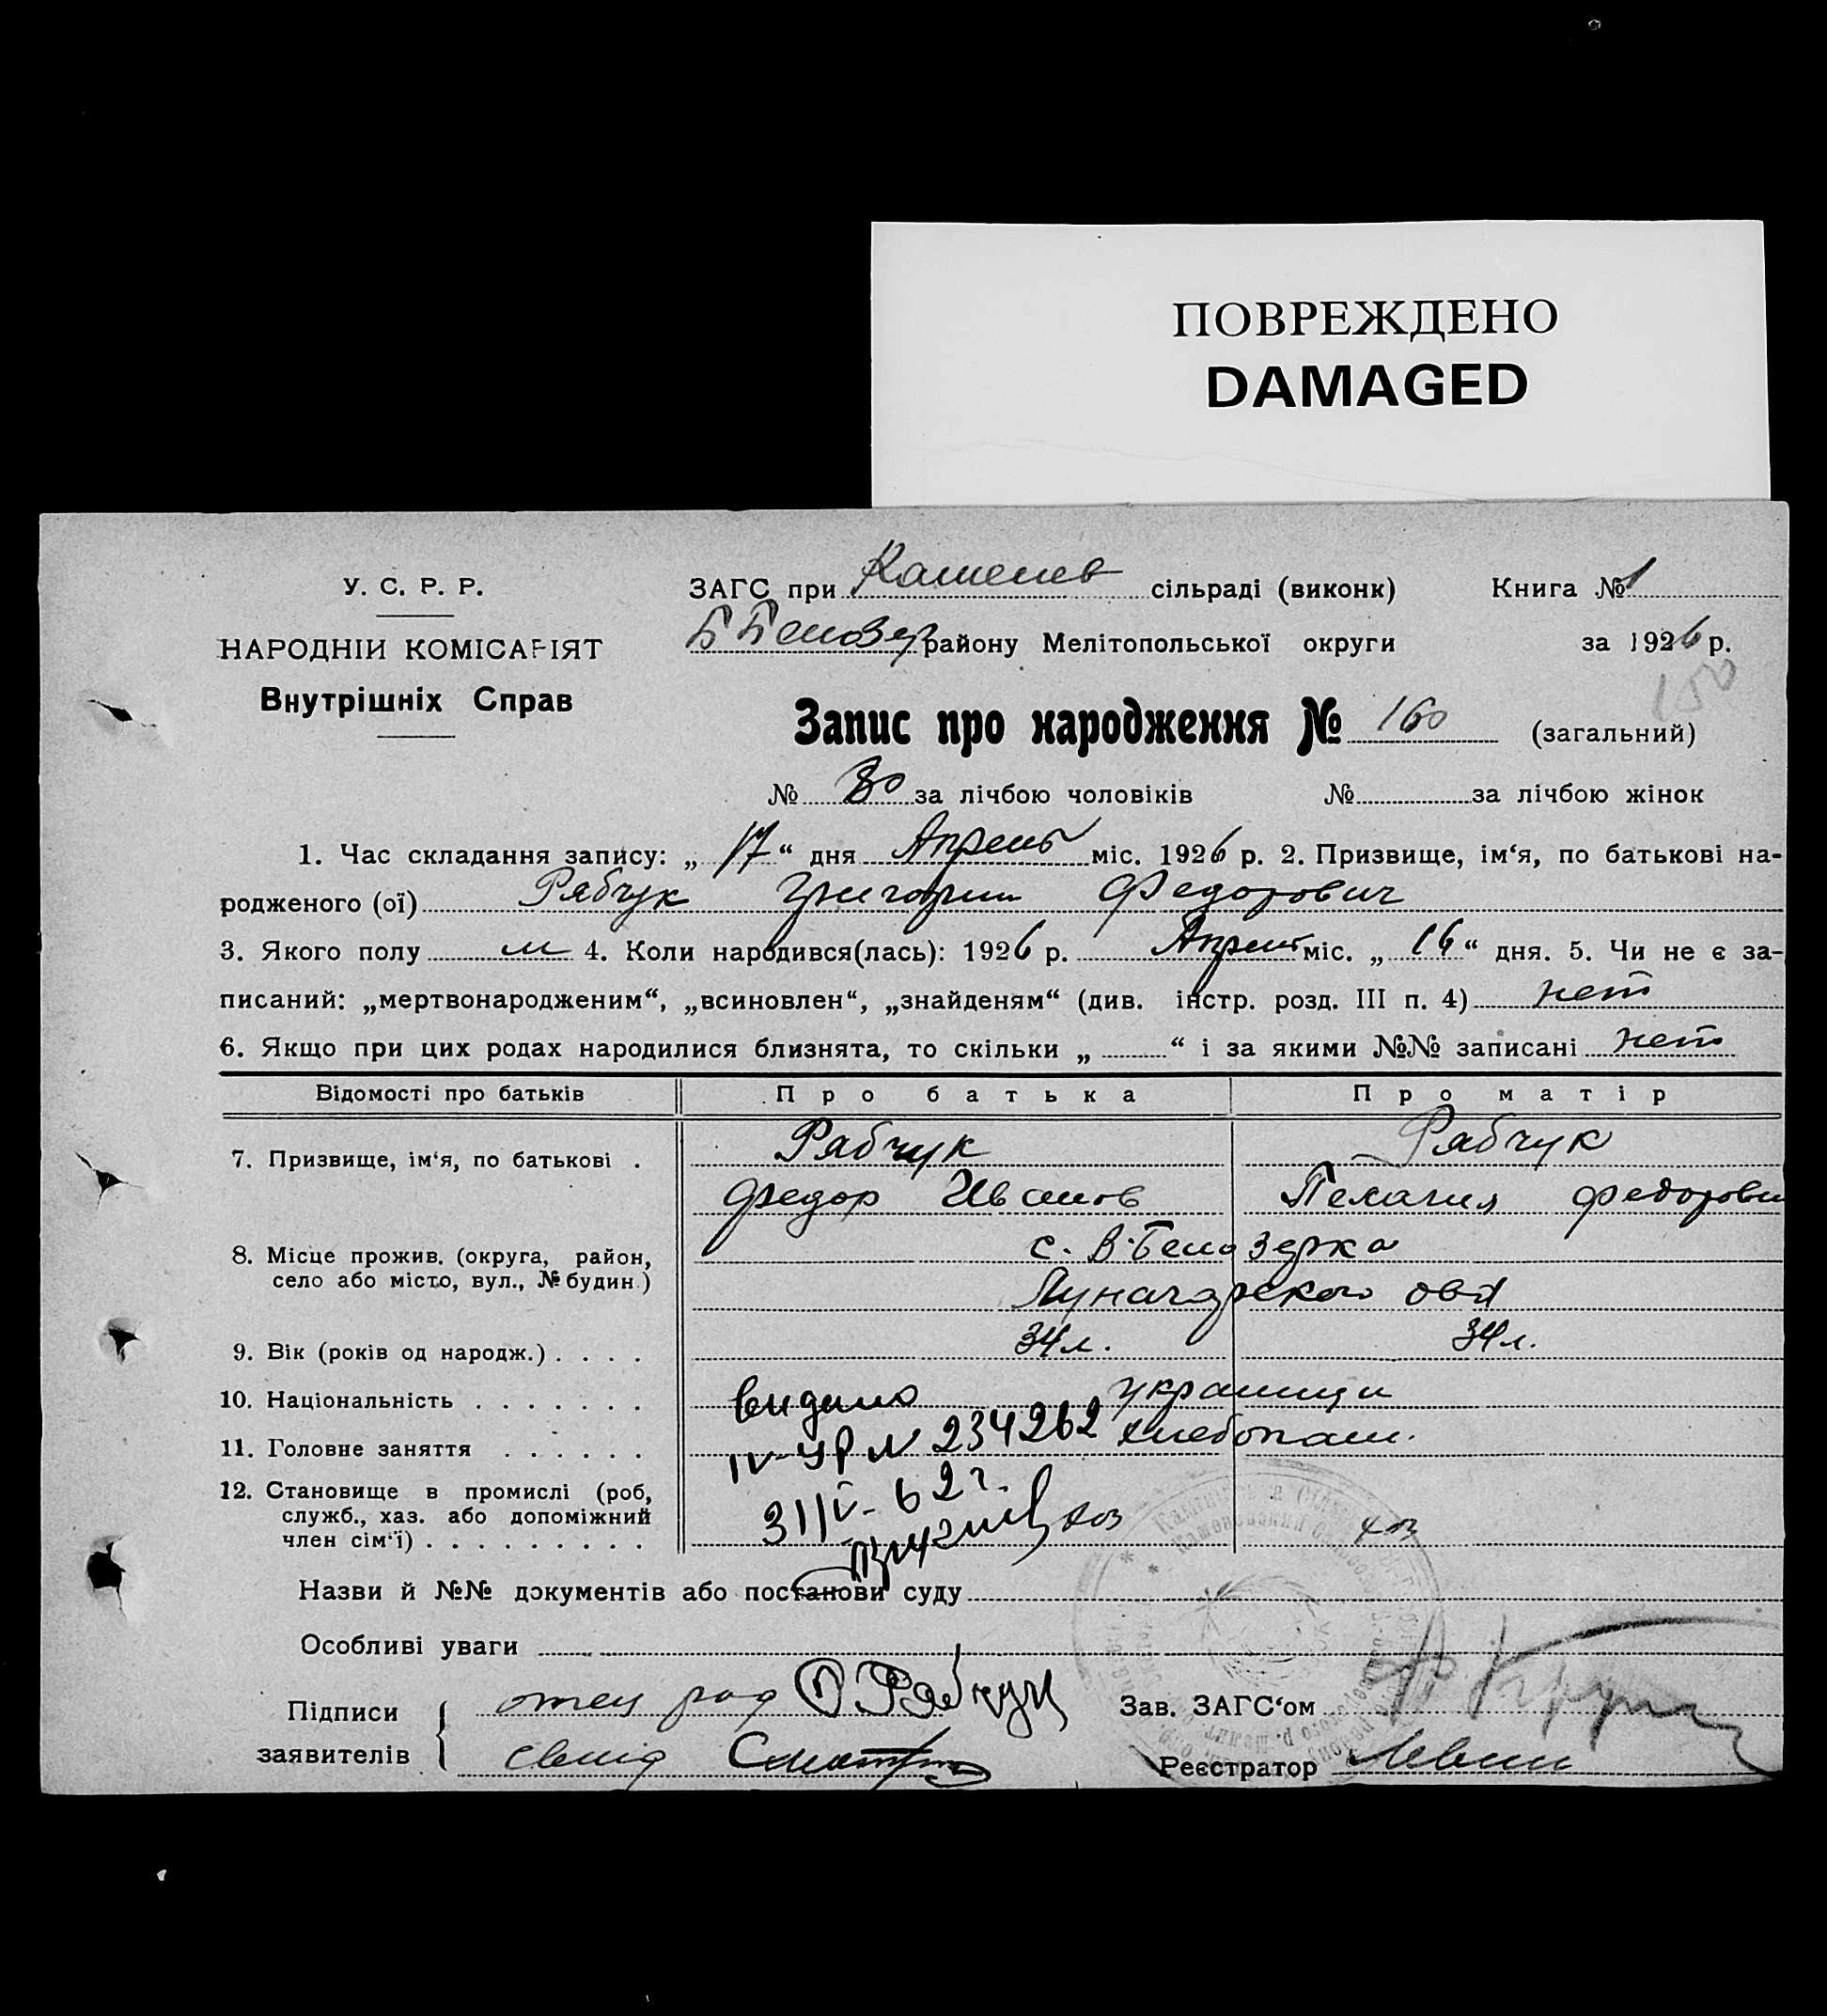 ПОВРЕЖДЕНО
DAMAGED
У. С. Р. Р.
НАРОДНІЙ КОМІСАРІЯТ
Внутрішніх Справ
ЗАГС при сільраді (виконк) Книга № 1
району Мелітопольської округи за 1926 р.
150
Запис про народження № 160 (загальний)
№ 80 за лічбою чоловіків № за лічбою жінок
1. Час складання запису: „ 17 “ дня Апрель міс. 1926 р. 2. Призвище, ім‘я, по батькові на-
родженого (ої) Рябчук Григорий Федорович
3. Якого полу м 4. Коли народився(лась): 1926 р. Апрель міс. „ 16 “ дня. 5. Чи не є за-
писаний: „мертвонародженим“, „всиновлен“, „знайденям“ (див. інстр. розд. III п. 4) нет
6. Якщо при цих родах народилися близнята, то скільки „ “ і за якими №№ записані нет
Відомості про батьків Про батька Про матір
7. Призвище, ім‘я, по батькові . Рябчук Рябчук
Федор Иванов Пелагия Федоровн
8. Місце прожив. (округа, район, с. В-Белозерка
село або місто, вул., № будин.) Луначарского
9. Вік (років од народж.) . . . . 34 л. 34 л.
10. Національність . . . . . . . видано украинци
11. Головне заняття . . . . . . IV-УР N 234262 хлебопаш.
12. Становище в промислі (роб, 31/V-62 г.
служб., хаз. або допоміжний хоз
член сім‘ї) . . . . . . . . .
Назви й №№ документів або постанови суду
Особливі уваги
Підписи отец Рябчук Зав. ЗАГС‘ом
заявителів свид Реєстратор Левин